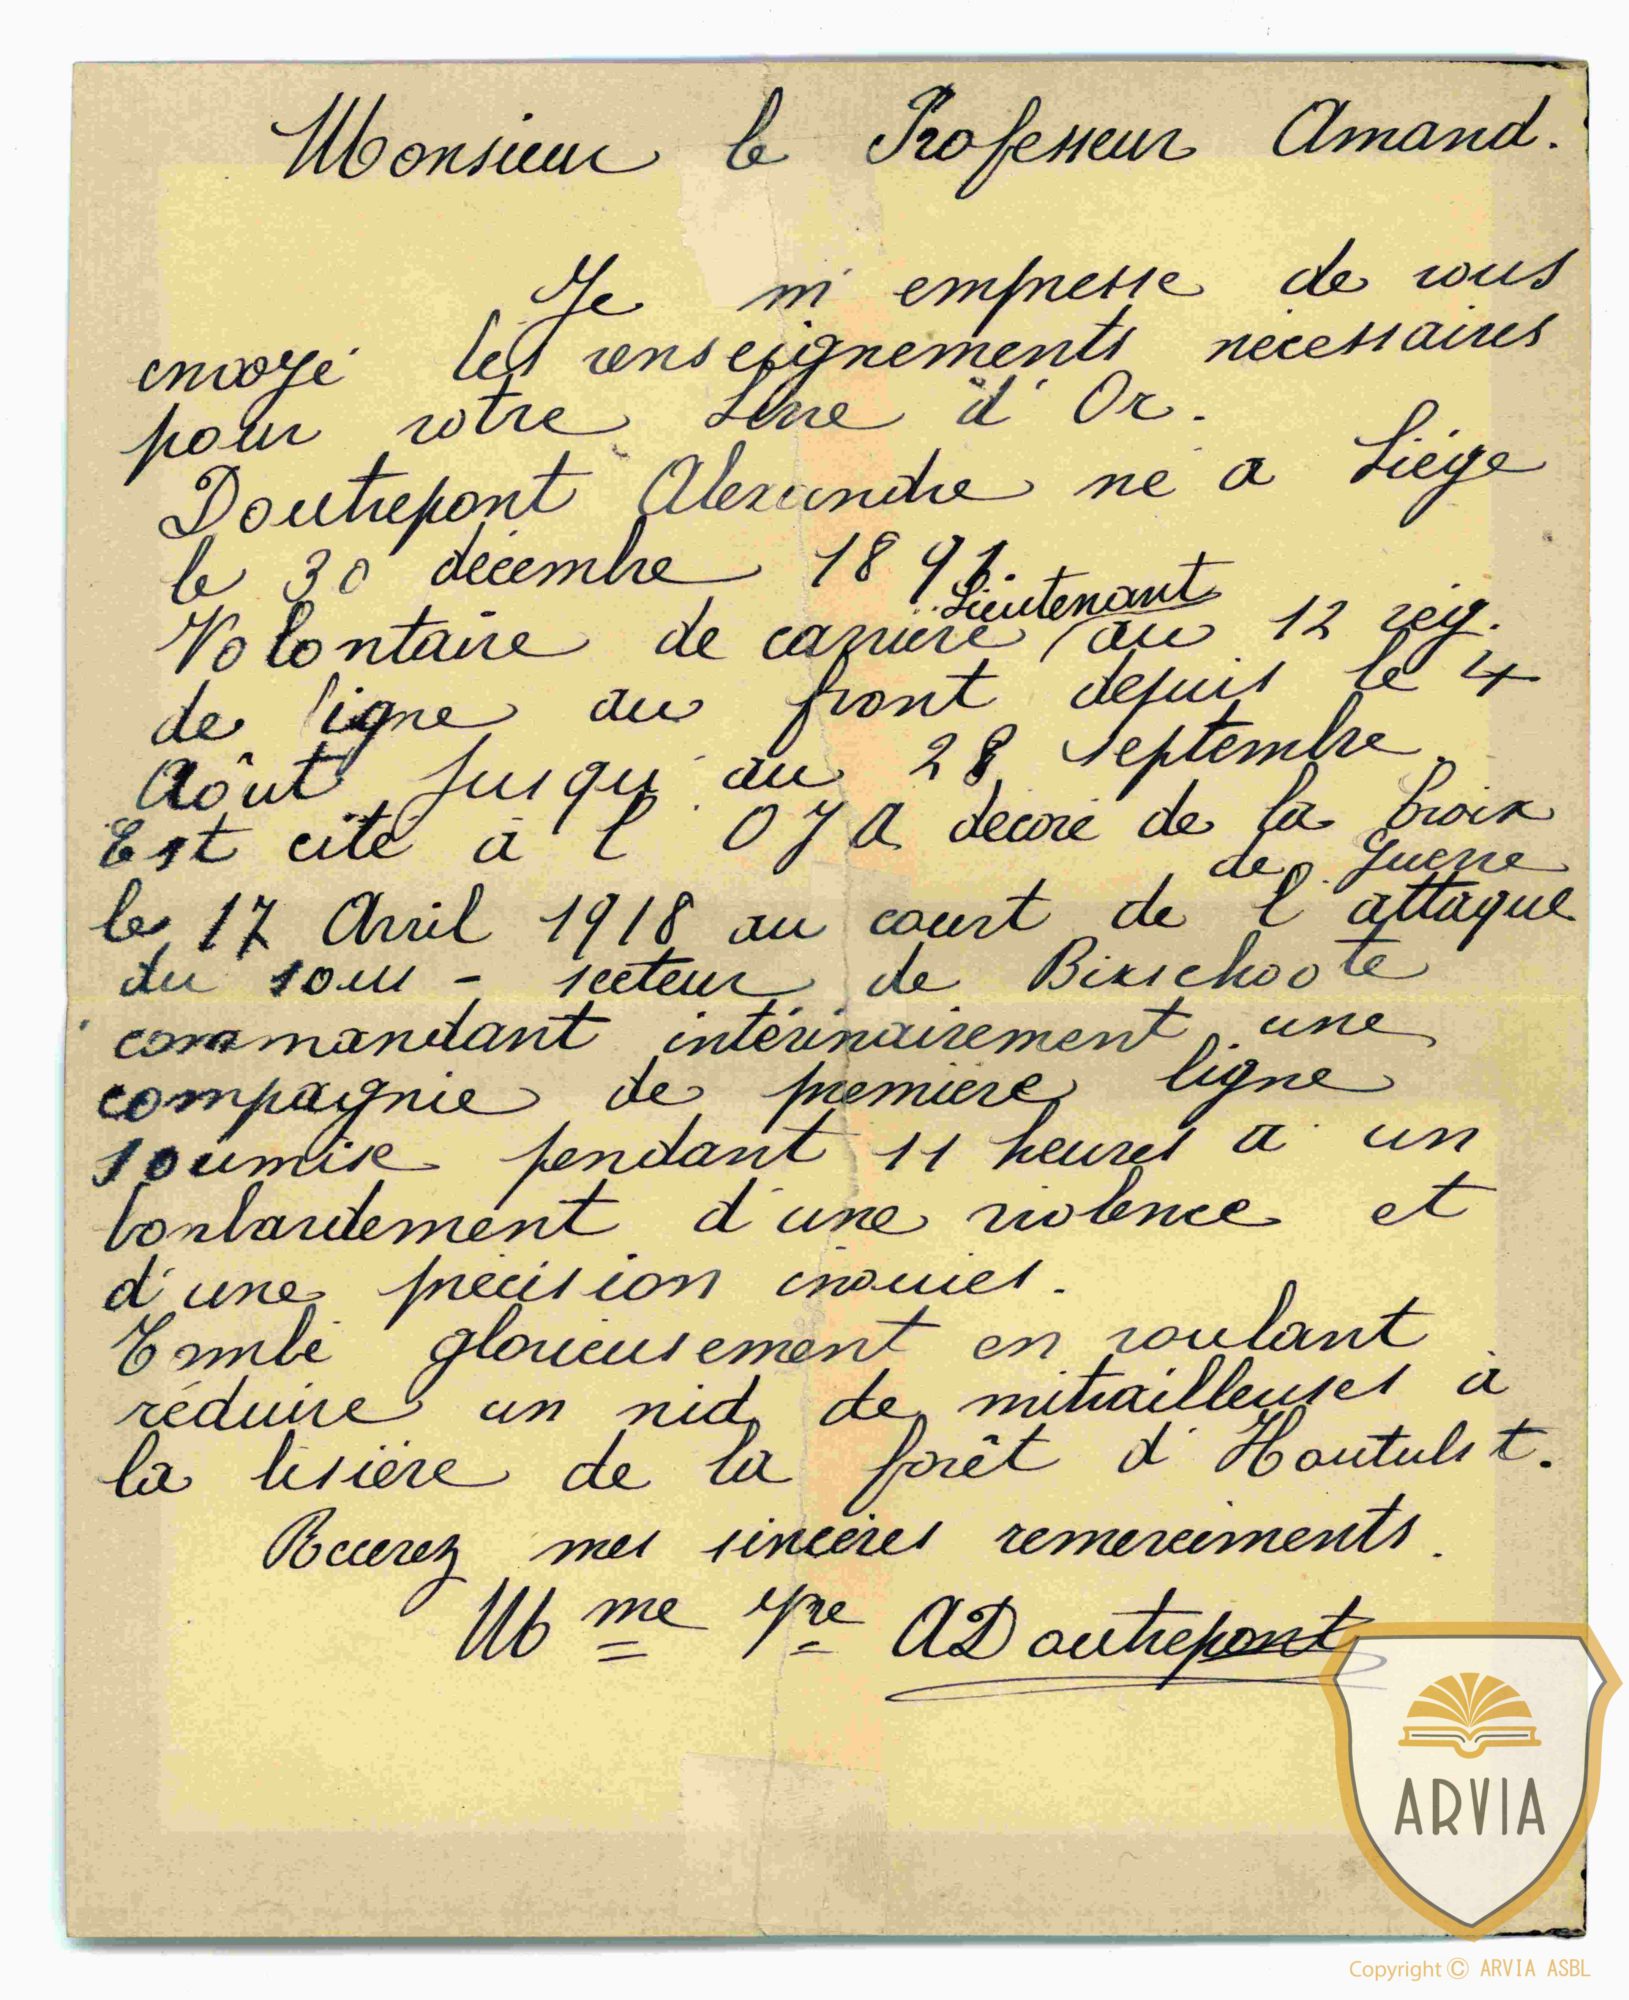 Monsieur le Professeur Amand.
Je m'empresse de vous
envoyé les renseignements nécessaires
pour votre Livre d'Or.
Doutrepont Alexandre né a Liége
le 30 décembre 1891.
Lieutenant
Volontaire de carrière au 12 rég.
de ligne au front depuis le 4
Aôut jusqu'au 28 septembre
Est cité à l'OJA décoré de la Croix
de Guerre
le 17 Avril 1918 au court de l'attaque
du sous-secteur de Bixschoote
commandant intérinairement une
compagnie de première ligne
soumise pendant 11 heures a un
bonbardement d'une violence et
d'une précision inouies.
Tombé glorieusement en voulant
réduire un nid de mitrailleuses à
la lisière de la forêt d'Houtulst.
Recevez mes sincères remerciments.
Mme Vve ADoutrepont
ARVIA
Copyright © ARVIA ASBL